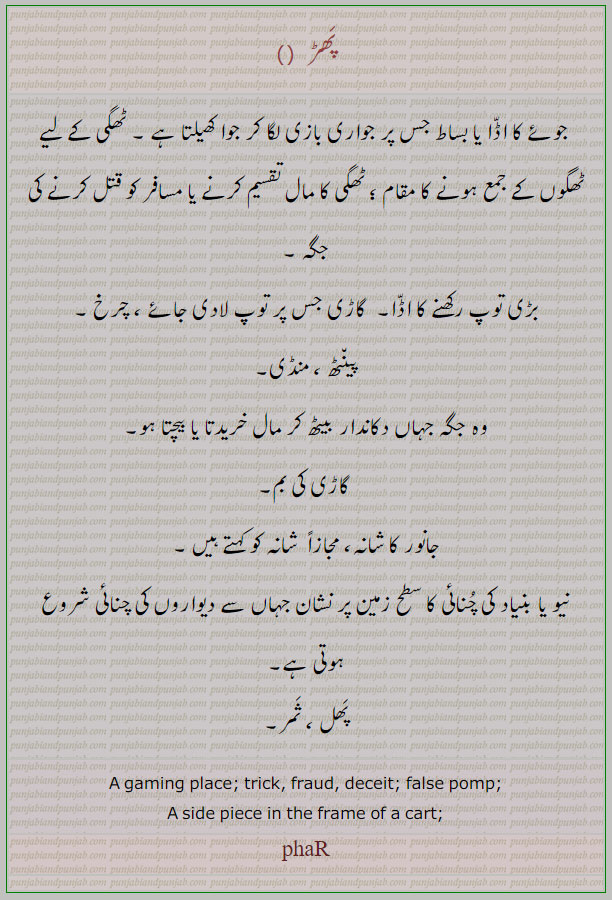 پَھڑ ()
جوئے کا اڈّا یا بساط جس پر جواری بازی لگا کر جوا کھیلتا ہے ۔ ٹھگی کے لیے
ٹھگوں کے جمع ہونے کا مقام ؛ ٹھگی کا مال تقسیم کرنے یا مسافر کو قتل کرنے کی
جگہ ۔
بڑی توپ رکھنے کا اڈّا۔ گاڑی جس پر توپ لادی جائے ، چرخ ۔
پینّٹھ ، منڈی۔
وہ جگہ جہاں دکاندار بیٹھ کر مال خریدتا یا بیچتا ہو۔
گاڑی کی بم۔
جانور کا شانہ، مجازاً شانہ کو کہتے ہیں ۔
نیو یا بنیاد کی چُنائی کا سطح زمین پر نشان جہاں سے دیواروں کی چنائی شروع
ہوتی ہے۔
پَھل ، ثَمر ۔
A gaming place; trick, fraud, deceit; false pomp;
A side piece in the frame of a cart;
phaR